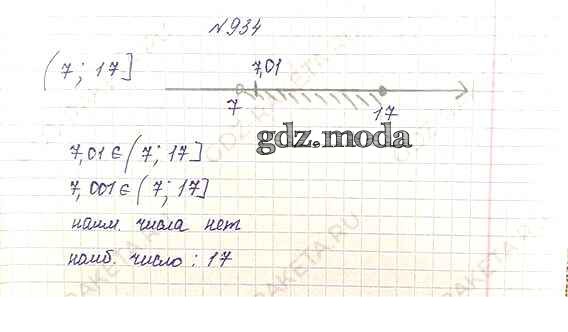 №934
(7; 17]
7,01
7
17
gdz.moda
7,01 ∈ (7; 17]
7,001 ∈ (7; 17]
наим. числа нет
наиб. число: 17